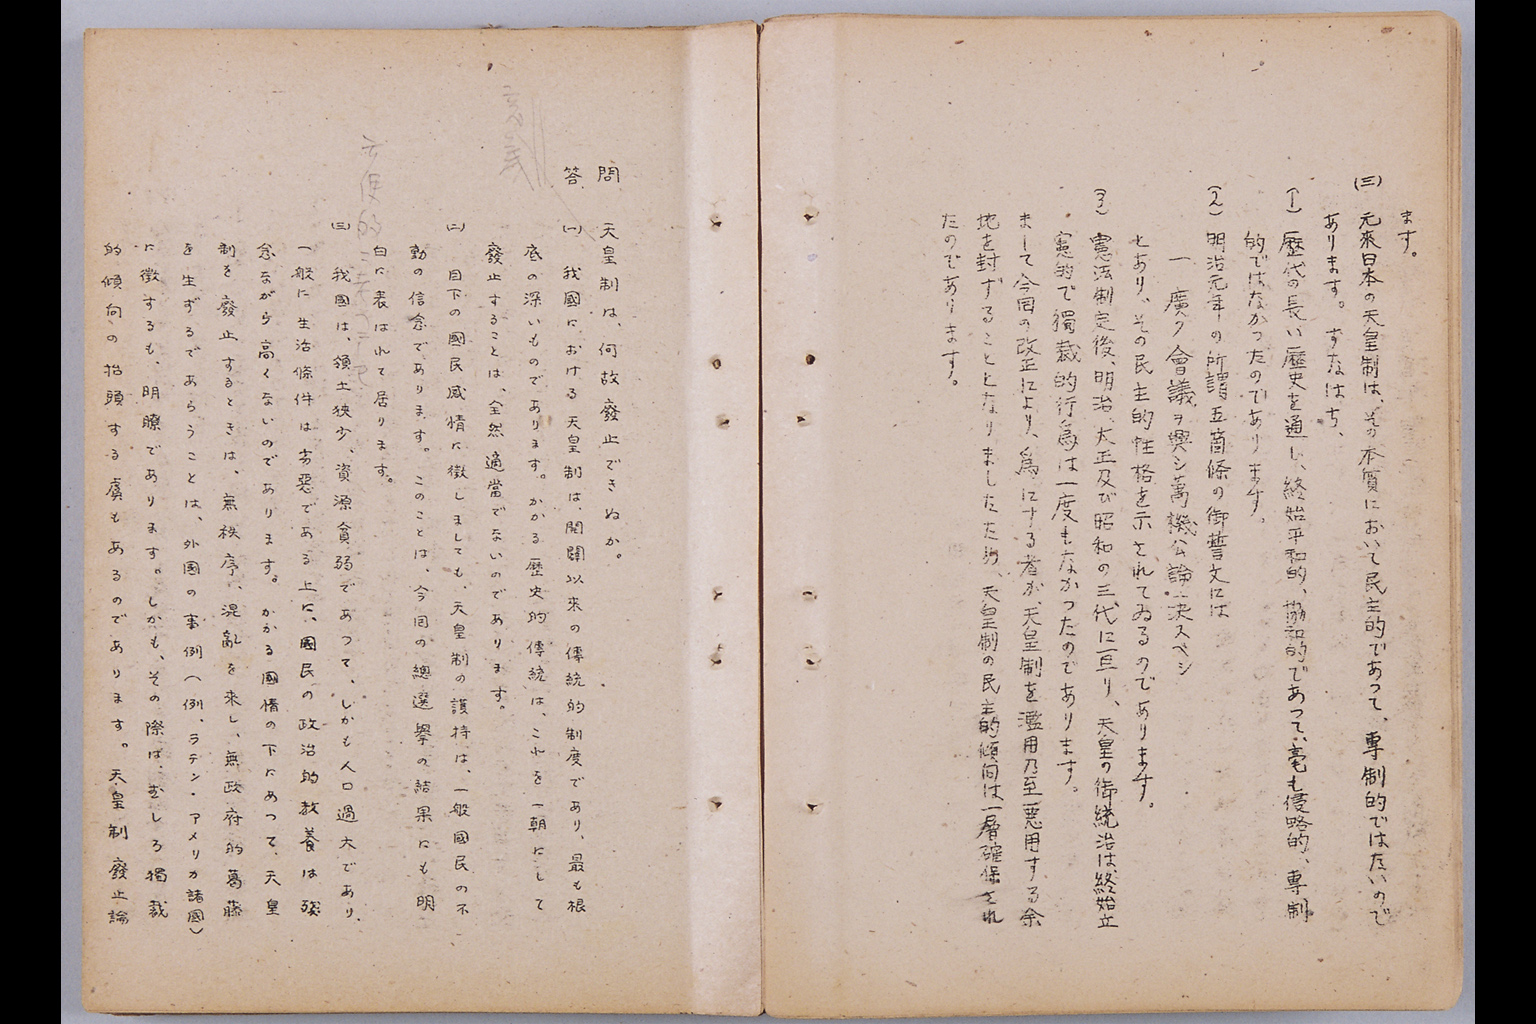 ます。
(三) 元來日本の天皇制は、その本質において民主的であつて、専制的ではないので
あります。すなはち、
(1) 歴代の長い歴史を通し、終始平和的、協和的であつて、毫も侵略的、専制
的ではなかつたのであります。
(2) 明治元年の所謂五箇條の御誓文には
一 廣ク會議ヲ興シ萬機公論ニ決スベシ
とあり、その民主的性格を示されてゐるのであります。
(3) 憲法制定後、明治、大正及び昭和の三代に亘り、天皇の御統治は終始立
憲的で獨裁的行爲は一度もなかつたのであります。
まして今回の改正により、爲にする者が、天皇制を濫用乃至惡用する余
地を封ずることとなりましたため、天皇制の民主的傾向は一層確保され
たのであります。
問 天皇制は、何故廢止できぬか。
答 (一) 我國における天皇制は、開闢以來の傳統的制度であり、最も根
底の深いものであります。かかる歴史的傳統は、これを一朝にして
廢止することは、全然適當でないのであります。
(二) 目下の國民感情に徴しましても、天皇制の護持は、一般國民の不
動の信念であります。このことは、今回の總選擧の結果にも明
白に表はれて居ります。
(三) 我國は、領土狭少、資源貧弱であつて、しかも人口過大であり、
一般に生活條件は劣惡である上に、國民の政治的教養は殘
念ながら高くないのであります。かかる國情の下にあつて、天皇
制を廢止するときは、無秩序、混亂を來し、無政府的葛藤
を生ずるであらうことは、外國の事例(例、ラテン・アメリカ諸國)
に徴するも、明瞭であります。しかも、その際は、むしろ獨裁
的傾向の抬頭する虞もあるのであります。天皇制廢止論